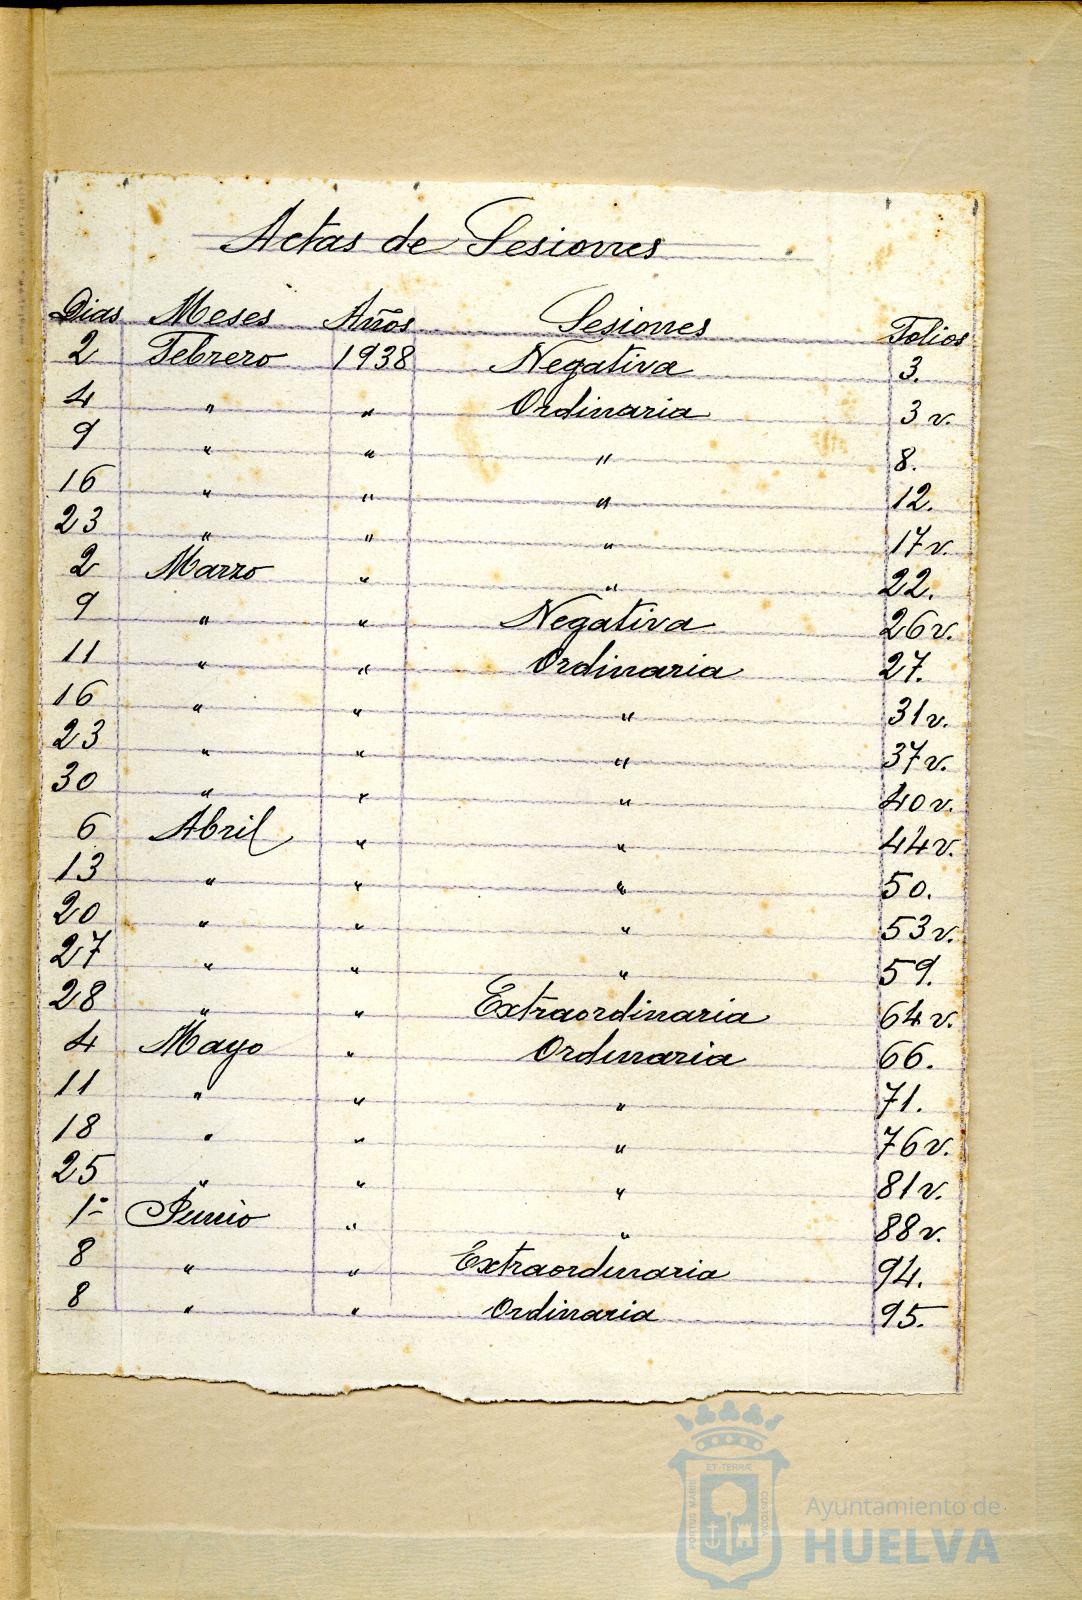 Actas de Sesiones
Dias Meses Años Sesiones Folios
2 Febrero 1938 Negativa 3.
4 " " Ordinaria 3 v.
9 " " " 8.
16 " " " 12.
23 " " " 17 v.
2 Marzo " " 22.
9 " " Negativa 26 v.
11 " " Ordinaria 27.
16 " " " 31 v.
23 " " " 37 v.
30 " " " 40 v.
6 Abril " " 44 v.
13 " " " 50.
20 " " " 53 v.
27 " " " 59.
28 " " Extraordinaria 64 v.
4 Mayo " Ordinaria 66.
11 " " " 71.
18 " " " 76 v.
25 " " " 81 v.
1º Junio " " 88 v.
8 " " Extraordinaria 94.
8 " " Ordinaria 95.
PORTUS MARIS ET TERRÆ CUSTODIA
Ayuntamiento de
HUELVA